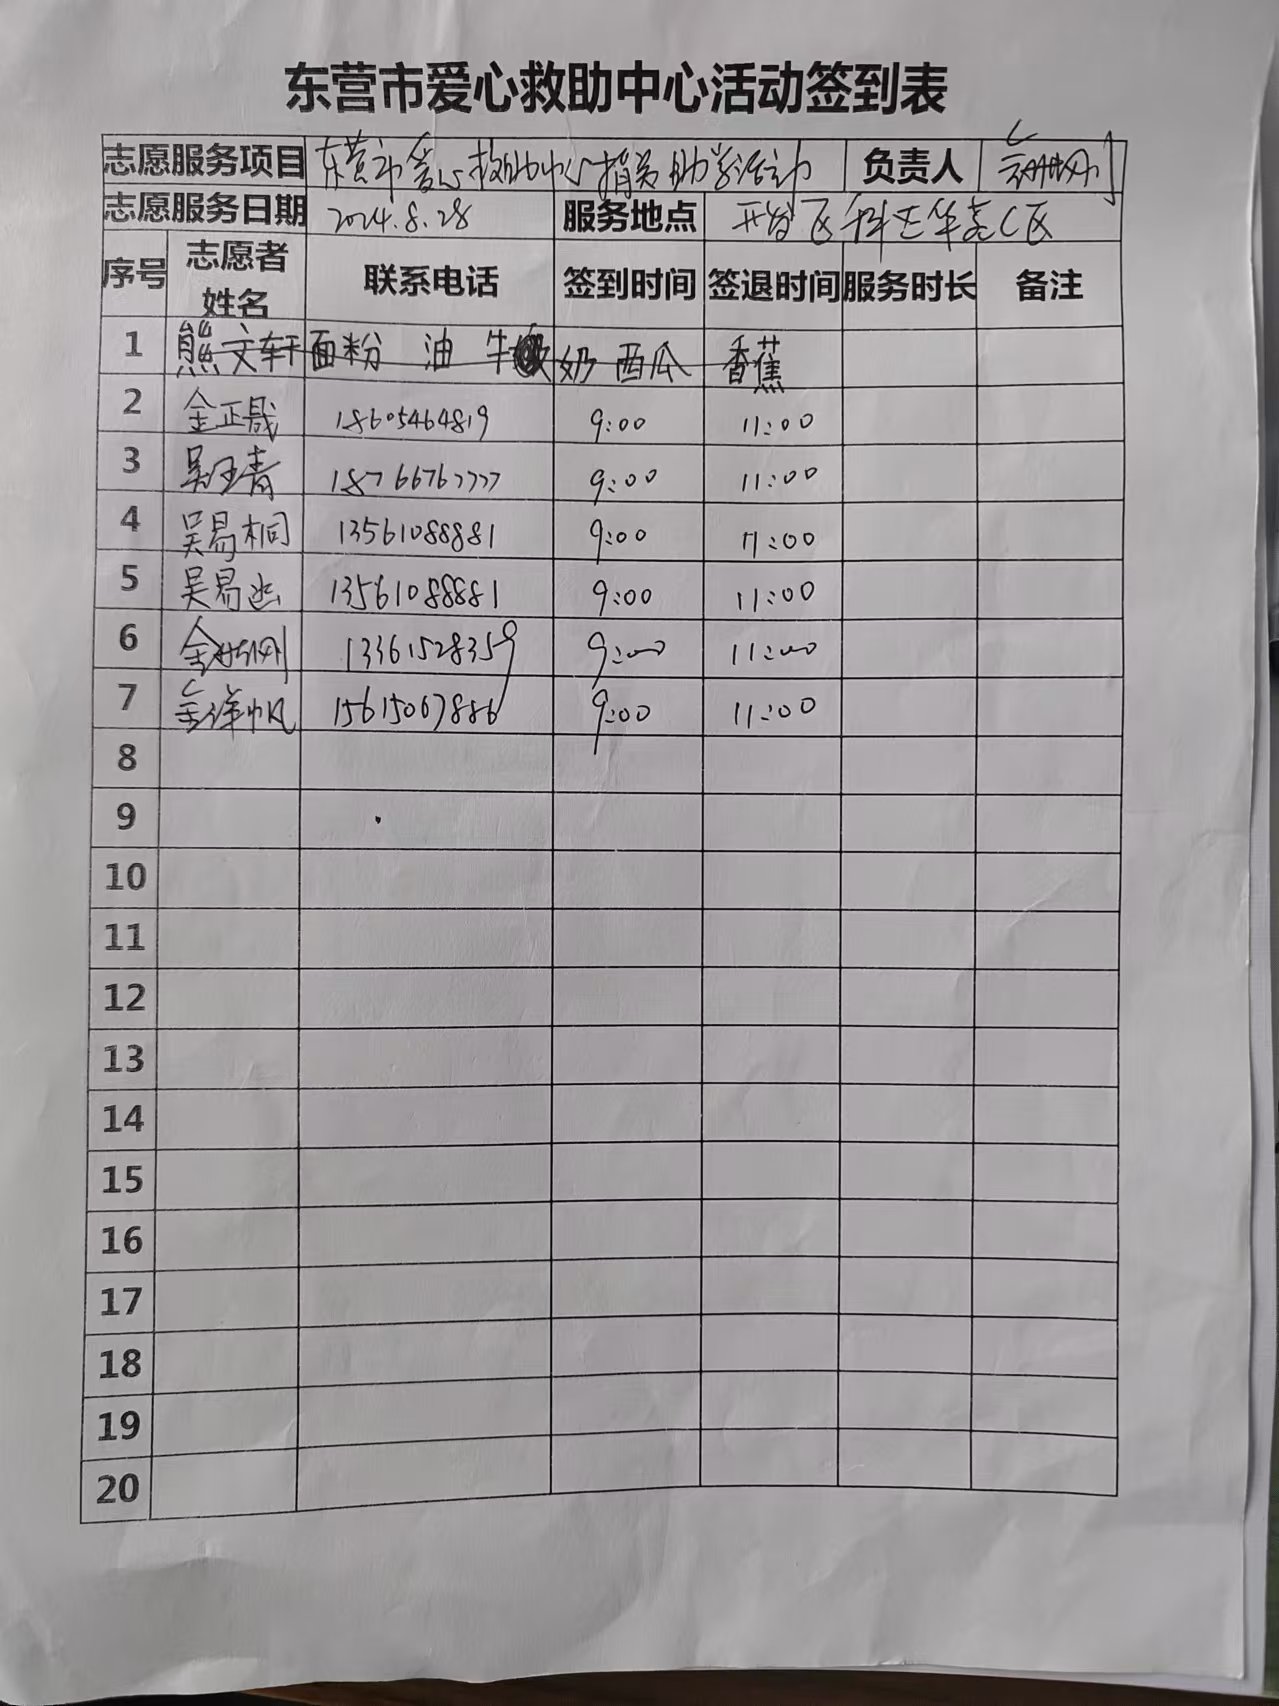 东营市爱心救助中心活动签到表
志愿服务项目 东营市爱心救助中心捐资助学活动 负责人
志愿服务日期 2024.8.28 服务地点 开发区科达华苑C区
序号 志愿者姓名 联系电话 签到时间 签退时间 服务时长 备注
1 熊文轩 面粉 油 牛奶 西瓜 香蕉
2 金正晟 18605464819 9:00 11:00
3 吴玉青 18766767777 9:00 11:00
4 吴易桐 13561088881 9:00 11:00
5 吴易 13561088881 9:00 11:00
6 金 13361528359 9:00 11:00
7 金泽帆 15615067886 9:00 11:00
8
9
10
11
12
13
14
15
16
17
18
19
20